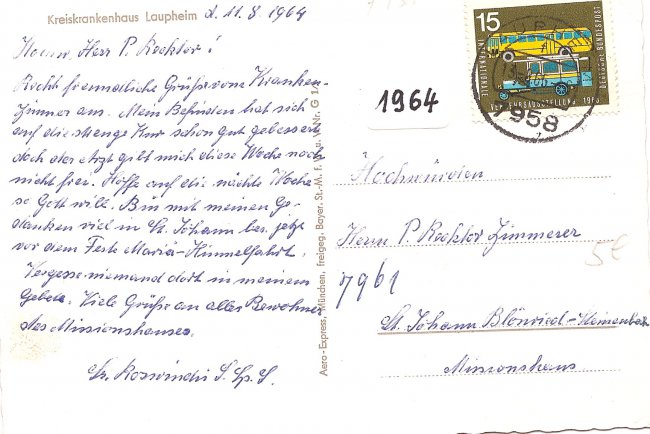 Kreiskrankenhaus Laupheim d. 11.8.1964
Hochw. Herr P. Recktor!
Recht freundliche Grüße vom Kranken-
zimmer aus. Mein Befinden hat sich
auf die strenge Kur schon gut gebessert
doch der Arzt gibt mich diese Woche noch
nicht frei. Hoffe auf die nächste Woche
so Gott will. Bin mit meinen Ge-
danken viel in St. Johann bes. jetzt
vor dem Feste Mariä-Himmelfahrt.
Vergesse niemand dort in meinem
Gebete. Viele Grüße an alle Bewohner
des Missionshauses.
Sr.
Aero-Express, München, freigeg. Bayer. St.-M. F. W. u. V. Nr. G
1964
15
INTERNATIONALE
VERKEHRSAUSSTELLUNG 1965
DEUTSCHE BUNDESPOST
7958
Hochwürden
Herrn P. Recktor Zimmerer
7961
St. Johann Blönried-
Missionshaus
5€